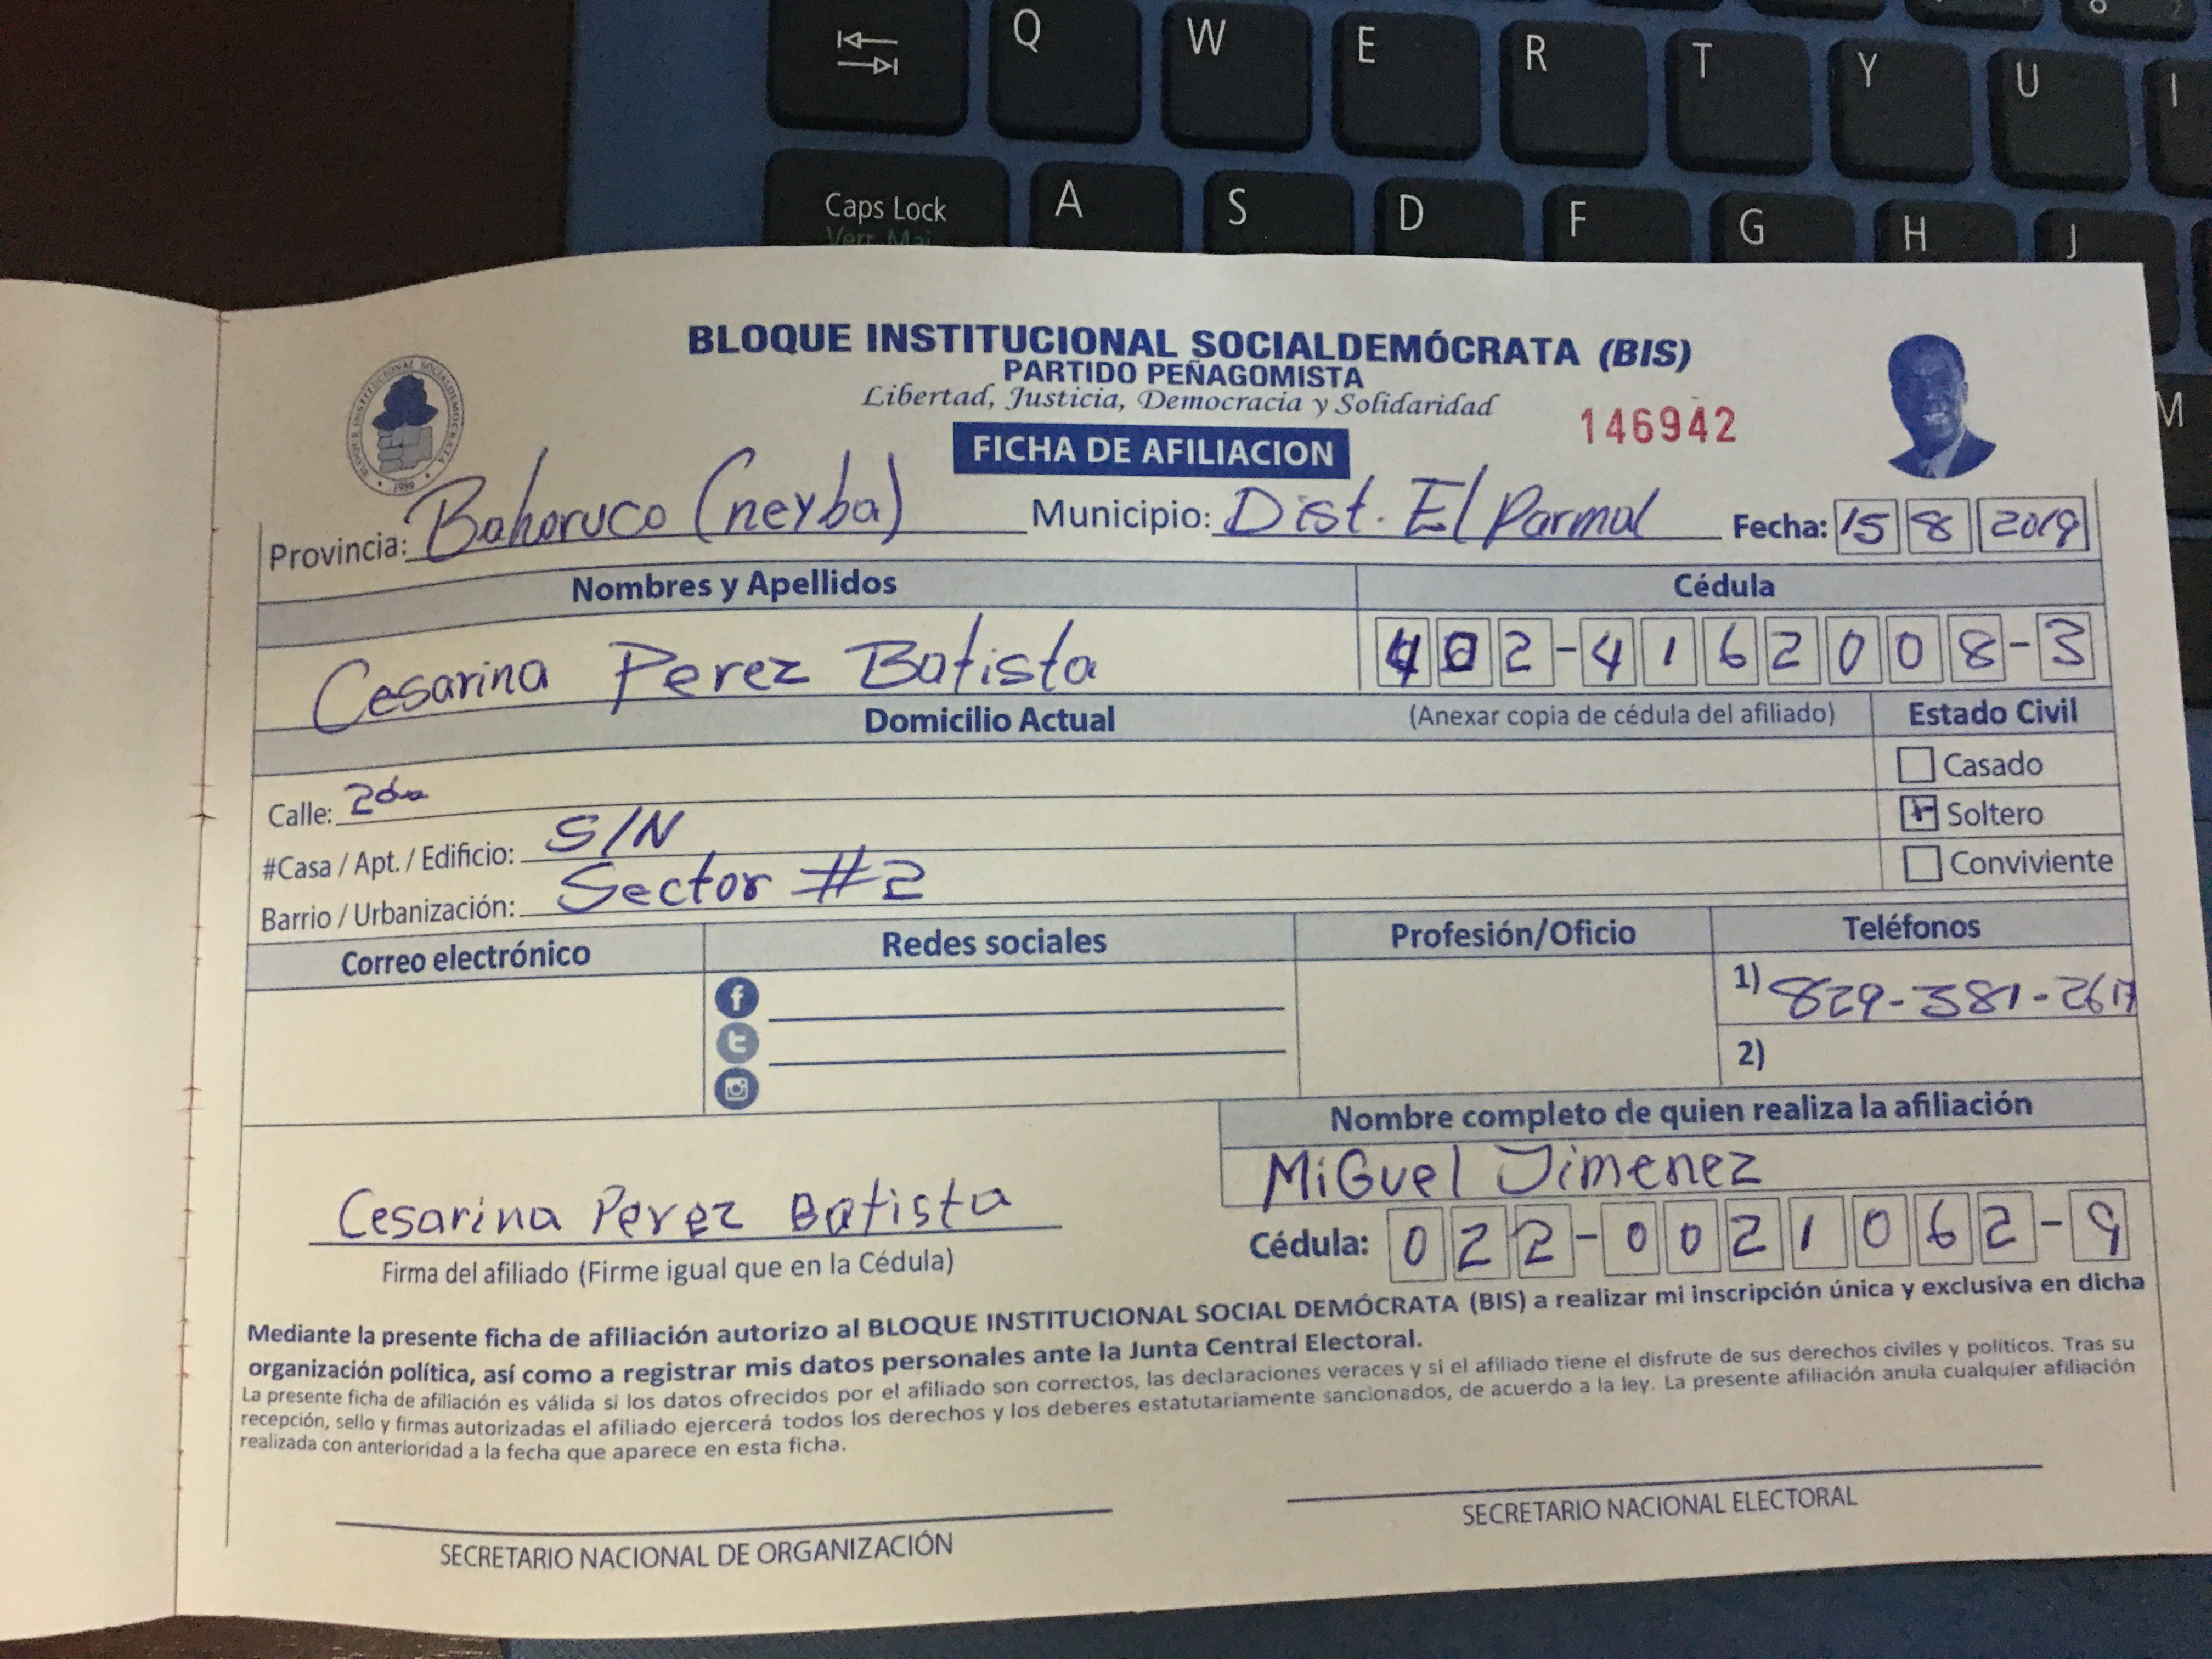 Q W E R T Y U I
Caps Lock A S D F G H J
M
BLOQUE INSTITUCIONAL SOCIALDEMÓCRATA (BIS)
PARTIDO PEÑAGOMISTA
Libertad, Justicia, Democracia y Solidaridad
146942
BLOQUE INSTITUCIONAL SOCIALDEMOCRATA
1989
FICHA DE AFILIACION
Provincia: Bahoruco (neyba) Municipio: Dist. El Parmal Fecha: 15 8 2019
Nombres y Apellidos Cédula
Cesarina Perez Batista 402-4162008-3
Domicilio Actual (Anexar copia de cédula del afiliado) Estado Civil
Casado
Calle: 2da
Soltero
#Casa / Apt. / Edificio: S/N
Conviviente
Barrio / Urbanización: Sector #2
Correo electrónico Redes sociales Profesión/Oficio Teléfonos
1) 829-381-2617
2)
Nombre completo de quien realiza la afiliación
MiGuel Jimenez
Cesarina Perez Batista
Cédula: 022-0021062-9
Firma del afiliado (Firme igual que en la Cédula)
Mediante la presente ficha de afiliación autorizo al BLOQUE INSTITUCIONAL SOCIAL DEMÓCRATA (BIS) a realizar mi inscripción única y exclusiva en dicha
organización política, así como a registrar mis datos personales ante la Junta Central Electoral.
La presente ficha de afiliación es válida si los datos ofrecidos por el afiliado son correctos, las declaraciones veraces y si el afiliado tiene el disfrute de sus derechos civiles y políticos. Tras su
recepción, sello y firmas autorizadas el afiliado ejercerá todos los derechos y los deberes estatutariamente sancionados, de acuerdo a la ley. La presente afiliación anula cualquier afiliación
realizada con anterioridad a la fecha que aparece en esta ficha.
SECRETARIO NACIONAL DE ORGANIZACIÓN SECRETARIO NACIONAL ELECTORAL